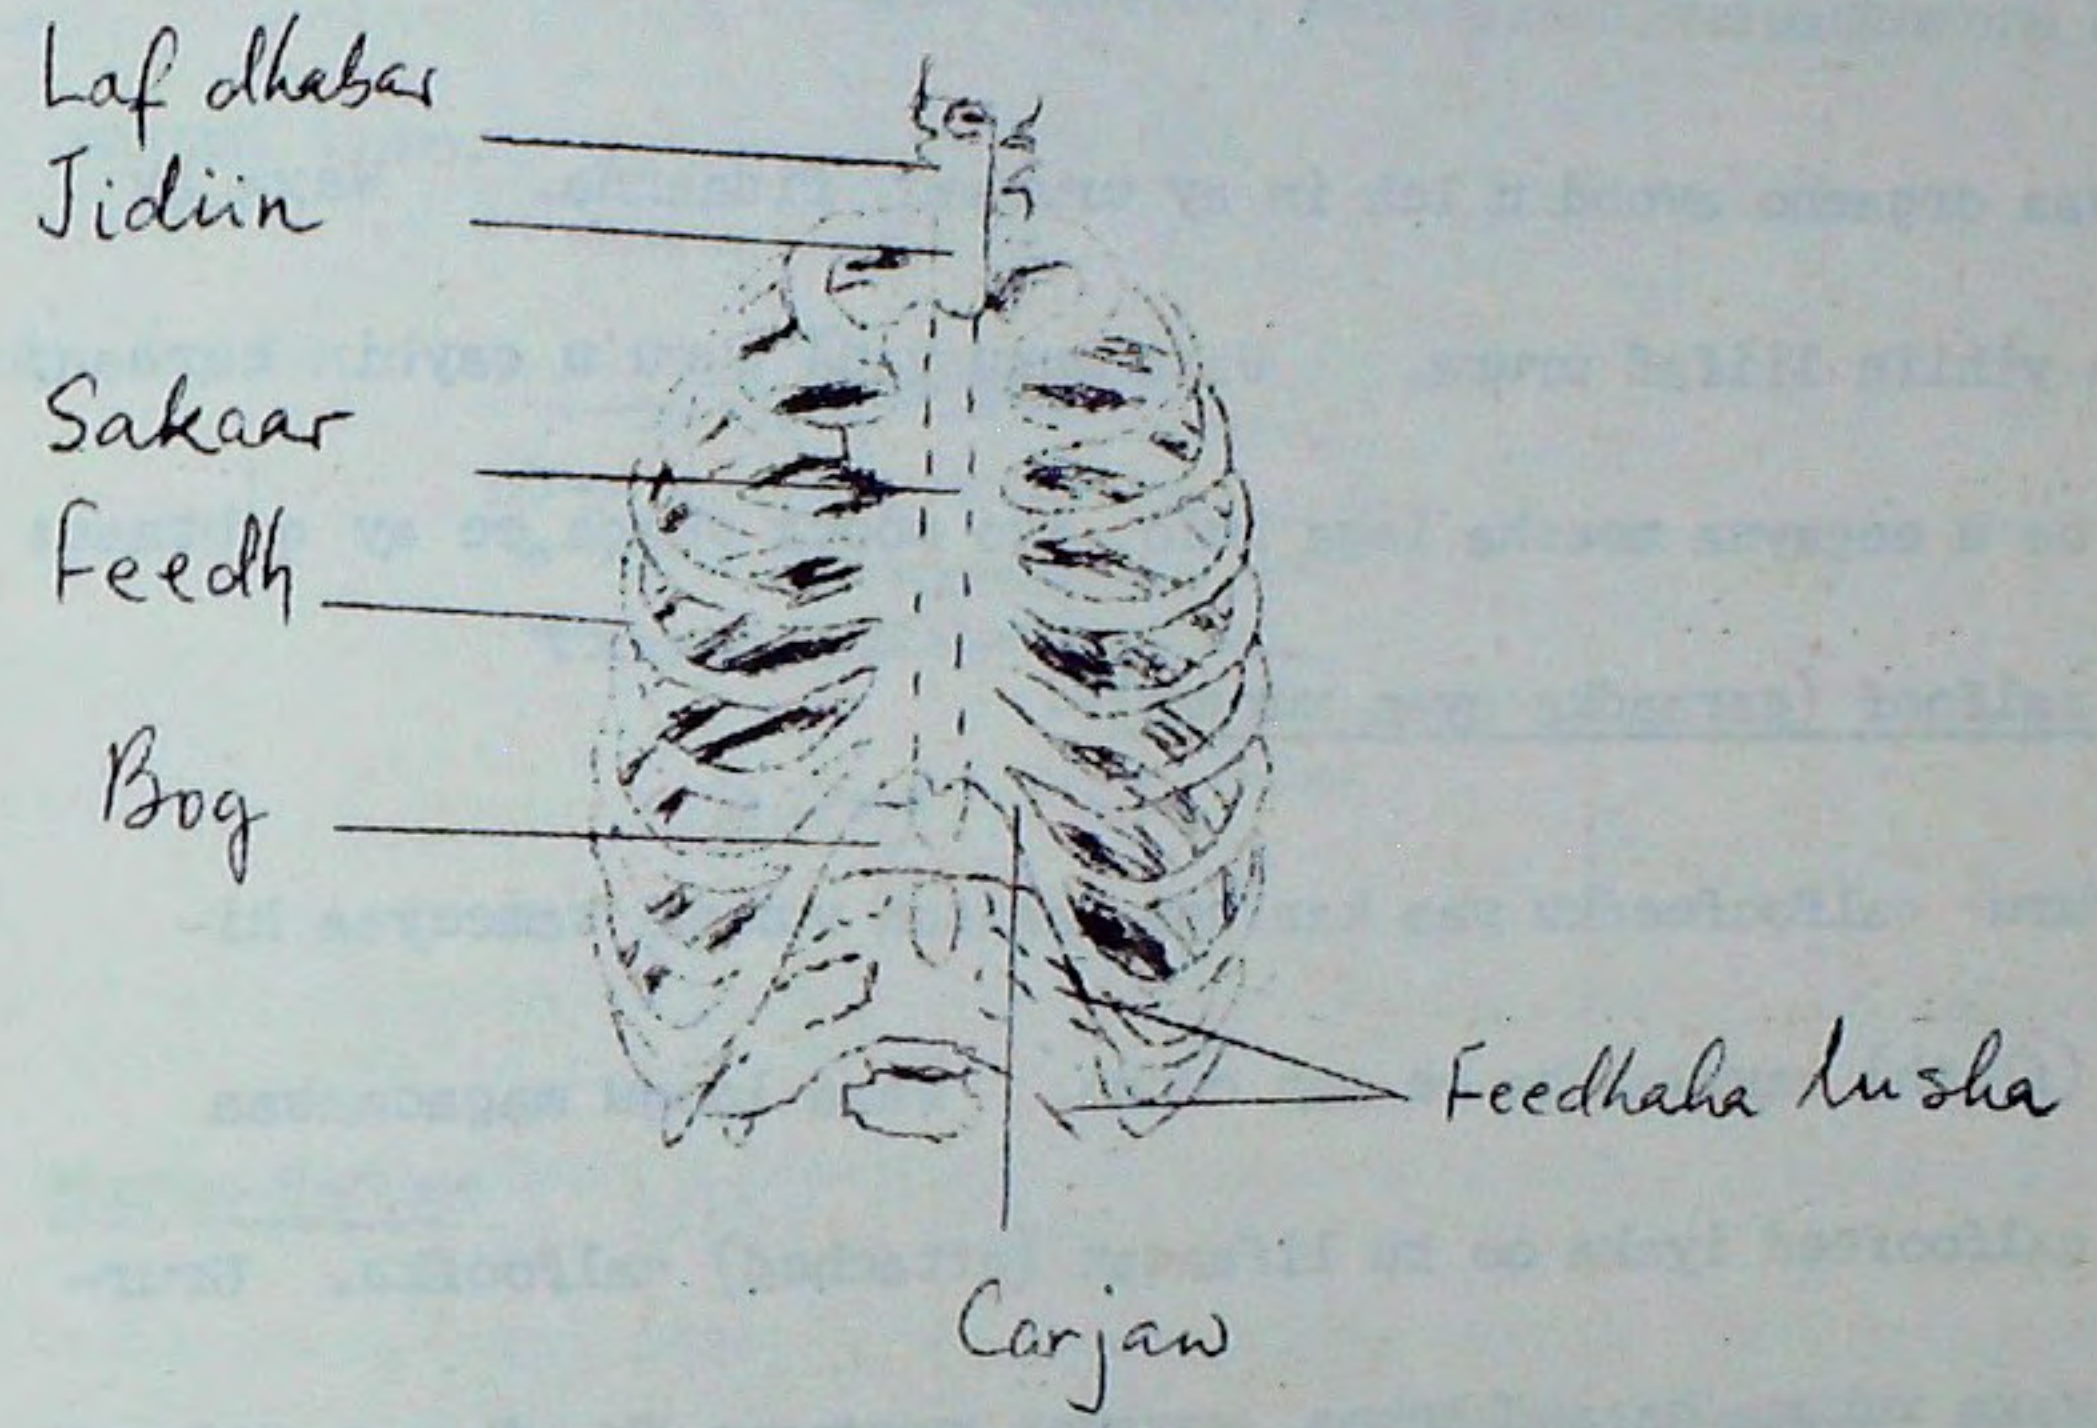 Laf dhabar
Jidiin
Sakaar
Feedh
Bog
Feedhaha lusha
Carjaw